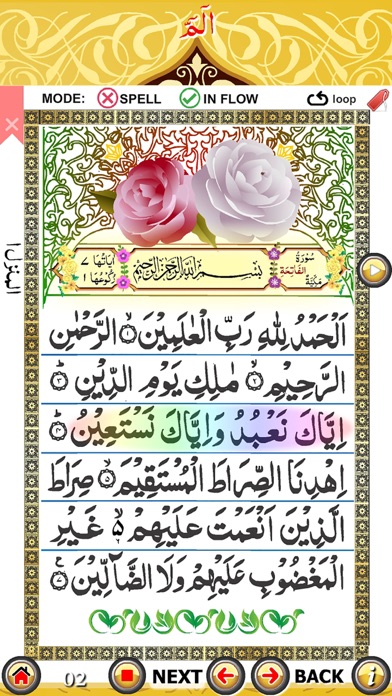 الٓمّٓ
MODE: SPELL IN FLOW loop
المنزل ١
سُوْرَةُ الفَاتِحَة مَكِّيَّةٌ
بِسْمِ اللهِ الرَّحْمٰنِ الرَّحِيْمِ
اٰيَاتُهَا ٧ رُكُوْعُهَا ١
اَلْحَمْدُ لِلّٰهِ رَبِّ الْعٰلَمِيْنَ ۝١ الرَّحْمٰنِ
الرَّحِيْمِ ۝٢ مٰلِكِ يَوْمِ الدِّيْنِ ۝٣ؕ
اِيَّاكَ نَعْبُدُ وَاِيَّاكَ نَسْتَعِيْنُ ۝٤ؕ
اِهْدِنَا الصِّرَاطَ الْمُسْتَقِيْمَ ۝٥ صِرَاطَ
الَّذِيْنَ اَنْعَمْتَ عَلَيْهِمْ ۵ غَيْرِ
الْمَغْضُوْبِ عَلَيْهِمْ وَلَا الضَّآلِّيْنَ ۝٧
02 NEXT BACK i